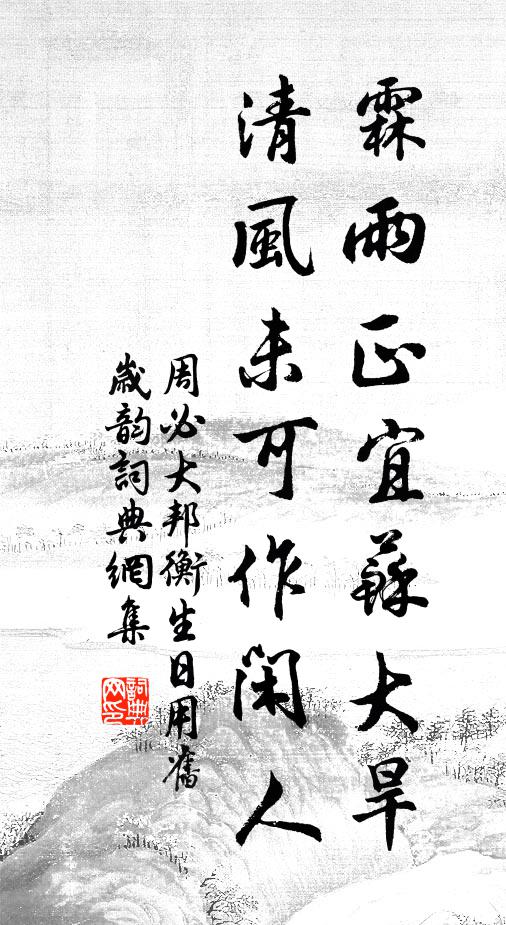 霖雨正宜蘇大旱
清風未可作閑人
周必大邦衡生日用舊
歲韵詞典網集
詞典
网印